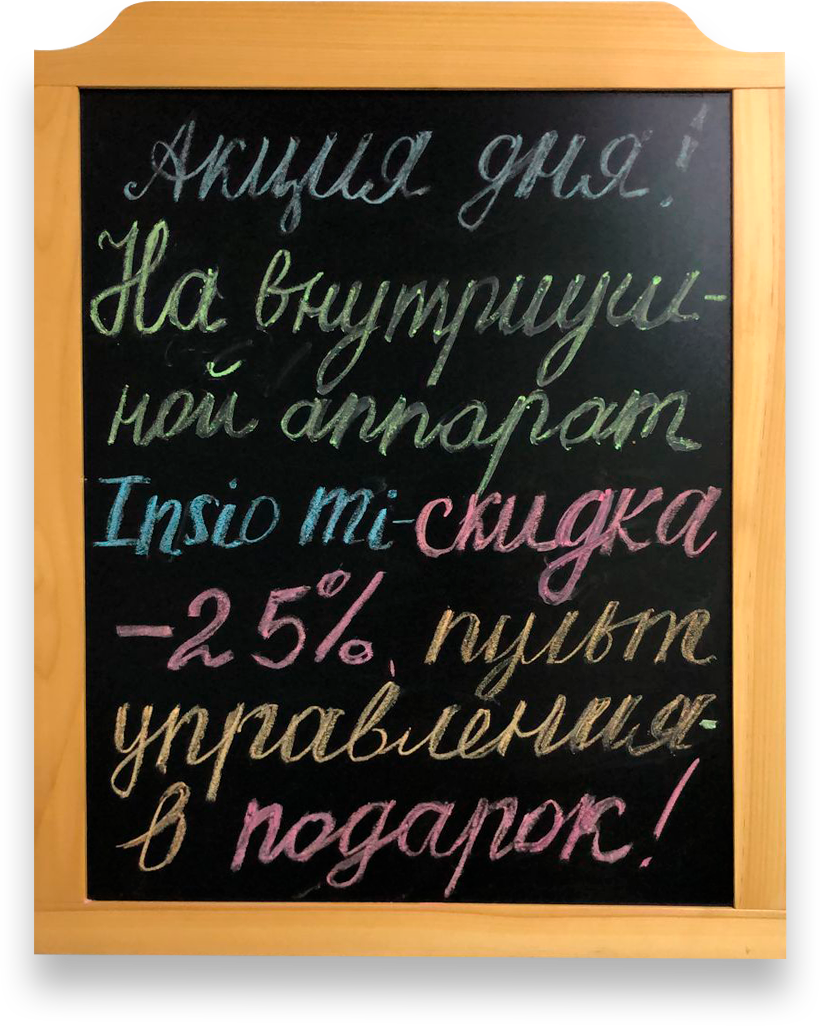 Акция дня!
На внутриуш-
ной аппарат
Insio mi-скидка
-25%, пульт
управления-
в подарок!